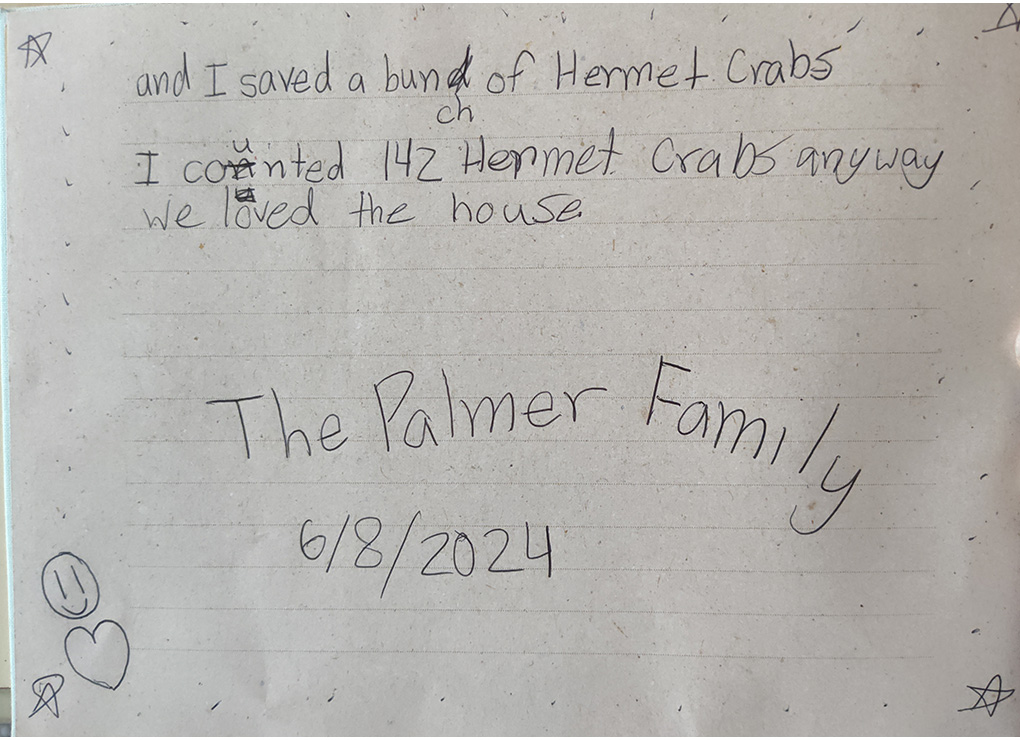 and I saved a bunch of Hermet Crabs
I counted 142 Hermet Crabs anyway
we loved the house.
The Palmer Family
6/8/2024